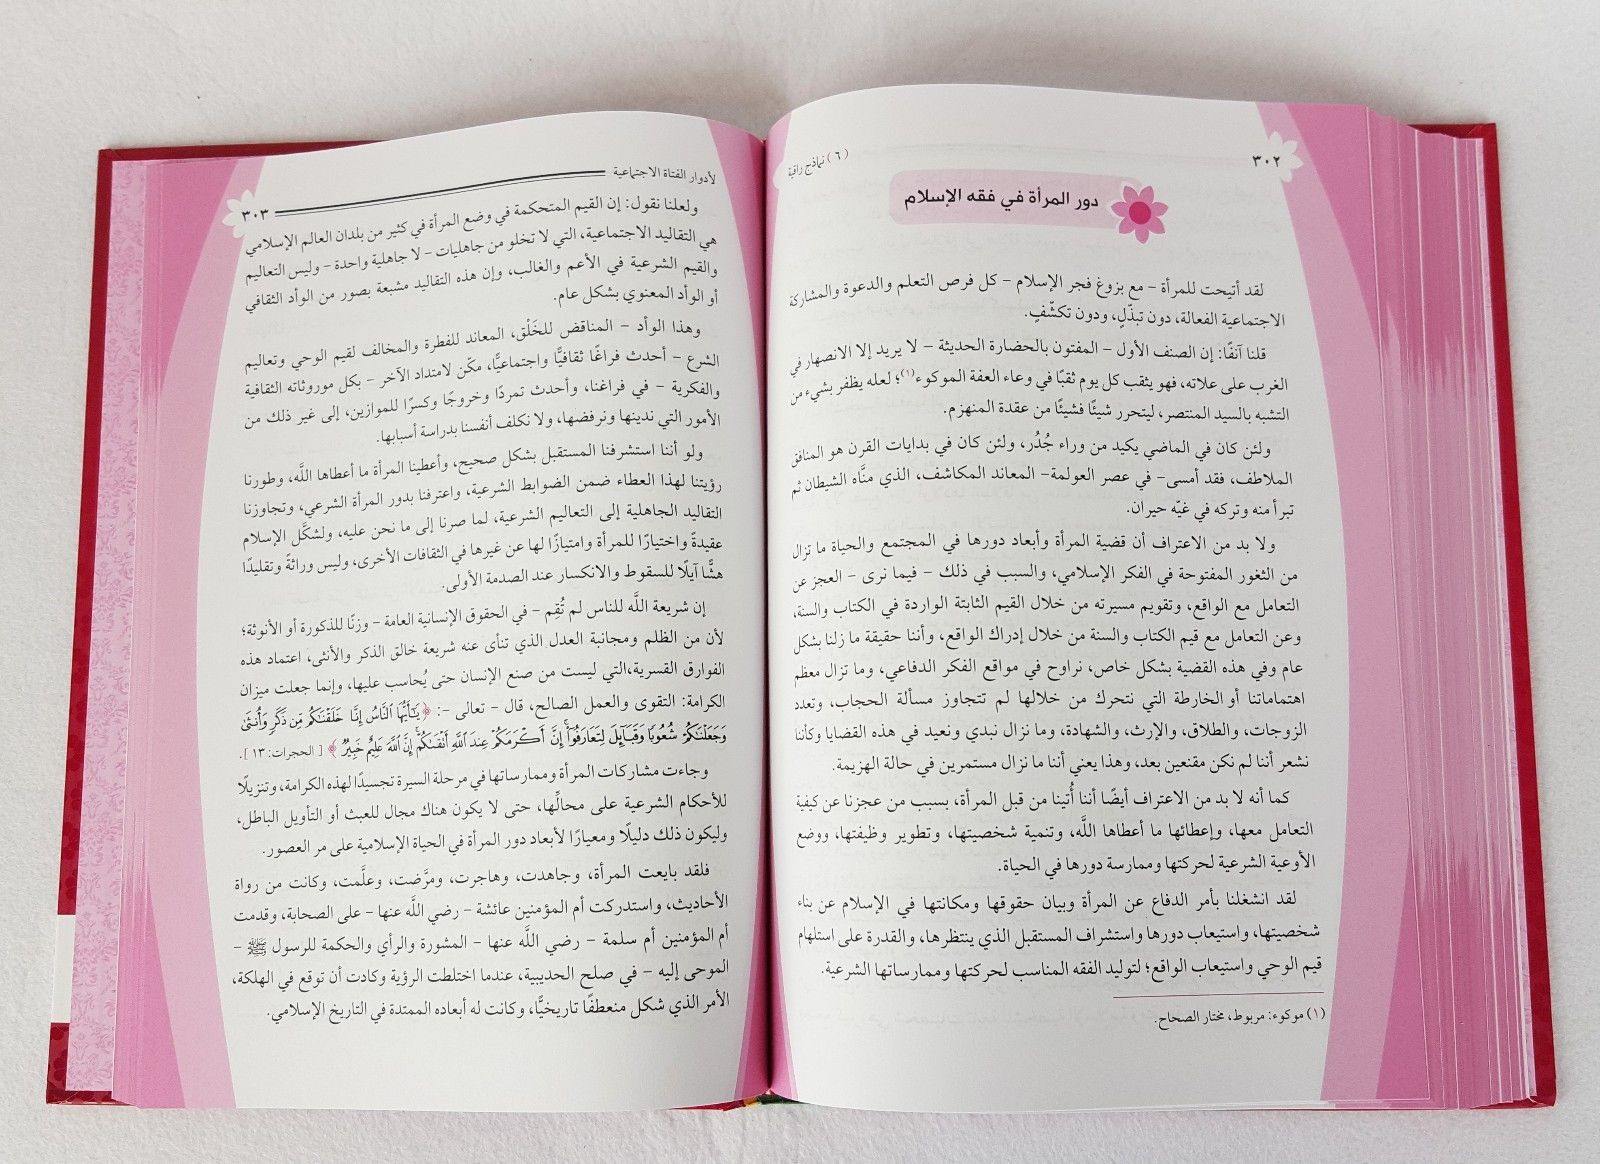 ٣٠٢
(٦) نماذج راقية
دور المرأة في فقه الإسلام
لقد أتيحت للمرأة – مع بزوغ فجر الإسلام – كل فرص التعلم والدعوة والمشاركة
الاجتماعية الفعالة، دون تبذّلٍ، ودون تكشّفٍ.
قلنا آنفًا: إن الصنف الأول – المفتون بالحضارة الحديثة – لا يريد إلا الانصهار في
الغرب على علاته، فهو يثقب كل يوم ثقبًا في وعاء العفة الموكوء(١)؛ لعله يظفر بشيء من
التشبه بالسيد المنتصر، ليتحرر شيئًا فشيئًا من عقدة المنهزم.
ولئن كان في الماضي يكيد من وراء جُدُر، ولئن كان في بدايات القرن هو المنافق
الملاطف، فقد أمسى– في عصر العولمة– المعاند المكاشف، الذي منَّاه الشيطان ثم
تبرأ منه وتركه في غيّه حيران.
ولا بد من الاعتراف أن قضية المرأة وأبعاد دورها في المجتمع والحياة ما تزال
من الثغور المفتوحة في الفكر الإسلامي، والسبب في ذلك – فيما نرى – العجز عن
التعامل مع الواقع، وتقويم مسيرته من خلال القيم الثابتة الواردة في الكتاب والسنة،
وعن التعامل مع قيم الكتاب والسنة من خلال إدراك الواقع، وأننا حقيقة ما زلنا بشكل
عام وفي هذه القضية بشكل خاص، نراوح في مواقع الفكر الدفاعي، وما تزال معظم
اهتماماتنا أو الخارطة التي نتحرك من خلالها لم تتجاوز مسألة الحجاب، وتعدد
الزوجات، والطلاق، والإرث، والشهادة، وما نزال نبدي ونعيد في هذه القضايا وكأننا
نشعر أننا لم نكن مقنعين بعد، وهذا يعني أننا ما نزال مستمرين في حالة الهزيمة.
كما أنه لا بد من الاعتراف أيضًا أننا أُتينا من قبل المرأة، بسبب من عجزنا عن كيفية
التعامل معها، وإعطائها ما أعطاها اللَّه، وتنمية شخصيتها، وتطوير وظيفتها، ووضع
الأوعية الشرعية لحركتها وممارسة دورها في الحياة.
لقد انشغلنا بأمر الدفاع عن المرأة وبيان حقوقها ومكانتها في الإسلام عن بناء
شخصيتها، واستيعاب دورها واستشراف المستقبل الذي ينتظرها، والقدرة على استلهام
قيم الوحي واستيعاب الواقع؛ لتوليد الفقه المناسب لحركتها وممارساتها الشرعية.
(١) موكوء: مربوط، مختار الصحاح.
لأدوار الفتاة الاجتماعية
٣٠٣
ولعلنا نقول: إن القيم المتحكمة في وضع المرأة في كثير من بلدان العالم الإسلامي
هي التقاليد الاجتماعية، التي لا تخلو من جاهليات – لا جاهلية واحدة – وليس التعاليم
والقيم الشرعية في الأعم والغالب، وإن هذه التقاليد مشبعة بصور من الوأد الثقافي
أو الوأد المعنوي بشكل عام.
وهذا الوأد – المناقض للخَلْق، المعاند للفطرة والمخالف لقيم الوحي وتعاليم
الشرع – أحدث فراغًا ثقافيًّا واجتماعيًّا، مكّن لامتداد الآخر – بكل موروثاته الثقافية
والفكرية – في فراغنا، وأحدث تمردًا وخروجًا وكسرًا للموازين، إلى غير ذلك من
الأمور التي ندينها ونرفضها، ولا نكلف أنفسنا بدراسة أسبابها.
ولو أننا استشرفنا المستقبل بشكل صحيح، وأعطينا المرأة ما أعطاها اللَّه، وطورنا
رؤيتنا لهذا العطاء ضمن الضوابط الشرعية، واعترفنا بدور المرأة الشرعي، وتجاوزنا
التقاليد الجاهلية إلى التعاليم الشرعية، لما صرنا إلى ما نحن عليه، ولشكَّل الإسلام
عقيدةً واختيارًا للمرأة وامتيازًا لها عن غيرها في الثقافات الأخرى، وليس وراثةً وتقليدًا
هشًّا آيلًا للسقوط والانكسار عند الصدمة الأولى.
إن شريعة اللَّه للناس لم تُقِم – في الحقوق الإنسانية العامة – وزنًا للذكورة أو الأنوثة؛
لأن من الظلم ومجانبة العدل الذي تنأى عنه شريعة خالق الذكر والأنثى، اعتماد هذه
الفوارق القسرية،التي ليست من صنع الإنسان حتى يُحاسب عليها، وإنما جعلت ميزان
الكرامة: التقوى والعمل الصالح، قال – تعالى –: ﴿يَٰٓأَيُّهَا ٱلنَّاسُ إِنَّا خَلَقْنَٰكُم مِّن ذَكَرٍ وَأُنثَىٰ
وَجَعَلْنَٰكُمْ شُعُوبًا وَقَبَآئِلَ لِتَعَارَفُوٓا۟ ۚ إِنَّ أَكْرَمَكُمْ عِندَ ٱللَّهِ أَتْقَىٰكُمْ ۚ إِنَّ ٱللَّهَ عَلِيمٌ خَبِيرٌ﴾ [ الحجرات: ١٣ ].
وجاءت مشاركات المرأة وممارساتها في مرحلة السيرة تجسيدًا لهذه الكرامة، وتنزيلًا
للأحكام الشرعية على محالِّها، حتى لا يكون هناك مجال للعبث أو التأويل الباطل،
وليكون ذلك دليلًا ومعيارًا لأبعاد دور المرأة في الحياة الإسلامية على مر العصور.
فلقد بايعت المرأة، وجاهدت، وهاجرت، ومرَّضت، وعلَّمت، وكانت من رواة
الأحاديث، واستدركت أم المؤمنين عائشة – رضي اللَّه عنها – على الصحابة، وقدمت
أم المؤمنين أم سلمة – رضي اللَّه عنها – المشورة والرأي والحكمة للرسول ﷺ –
الموحى إليه – في صلح الحديبية، عندما اختلطت الرؤية وكادت أن توقع في الهلكة،
الأمر الذي شكل منعطفًا تاريخيًّا، وكانت له أبعاده الممتدة في التاريخ الإسلامي.